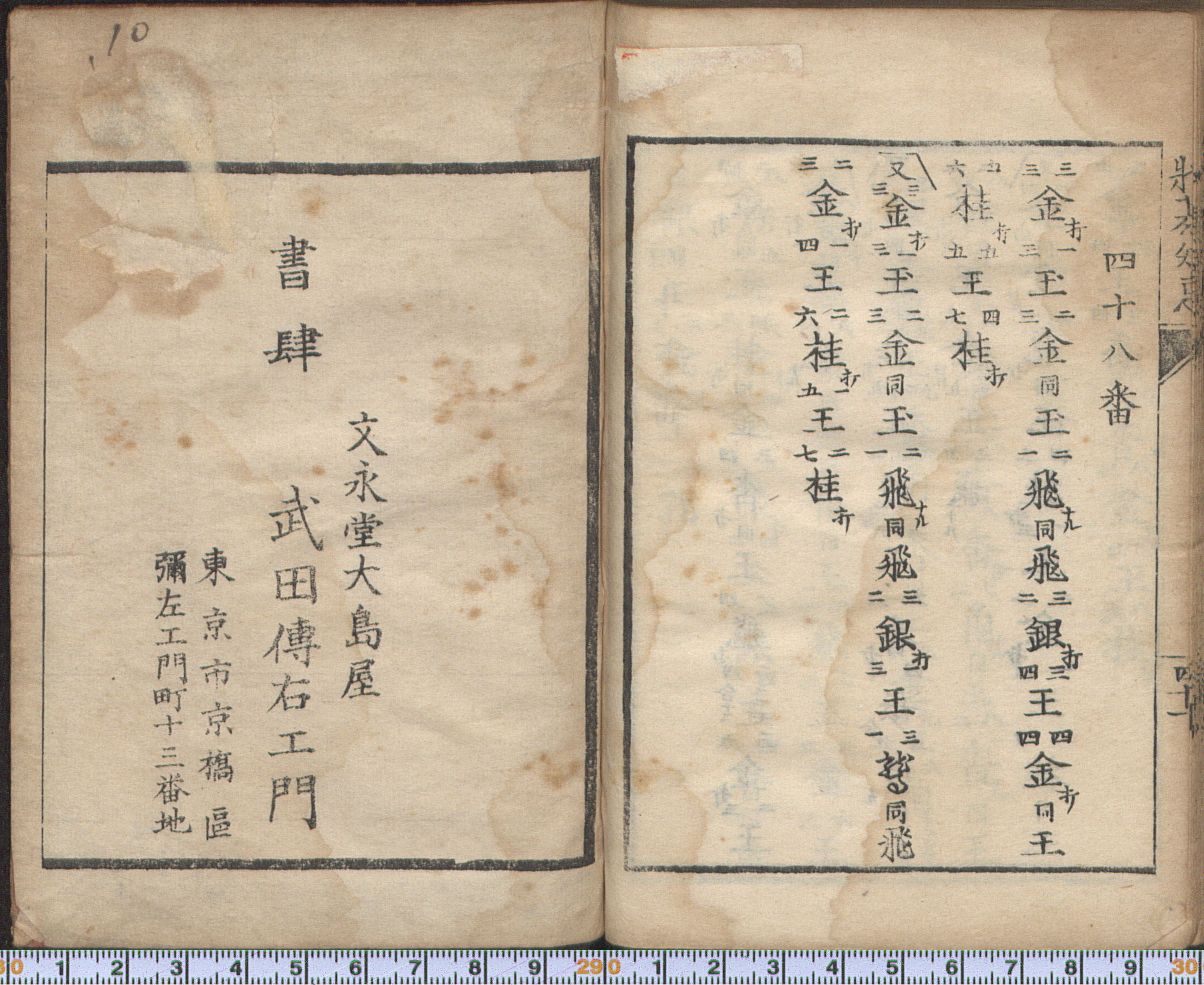 四十八番
三三金打一三王二三金同王二一飛ナル同飛三二銀打三四王四四金打同王
四六桂打五五王四七桂打
又三三金打一三王二三金同王二一飛ナル同飛三二銀打一三王三一鷲同飛
二三金打一四王二六桂打一五王二七桂打
四十一
10
文永堂大島屋
書肆 武田傳右工門
東京市京橋區
彌左工門町十三番地
30 1 2 3 4 5 6 7 8 9 290 1 2 3 4 5 6 7 8 9 30